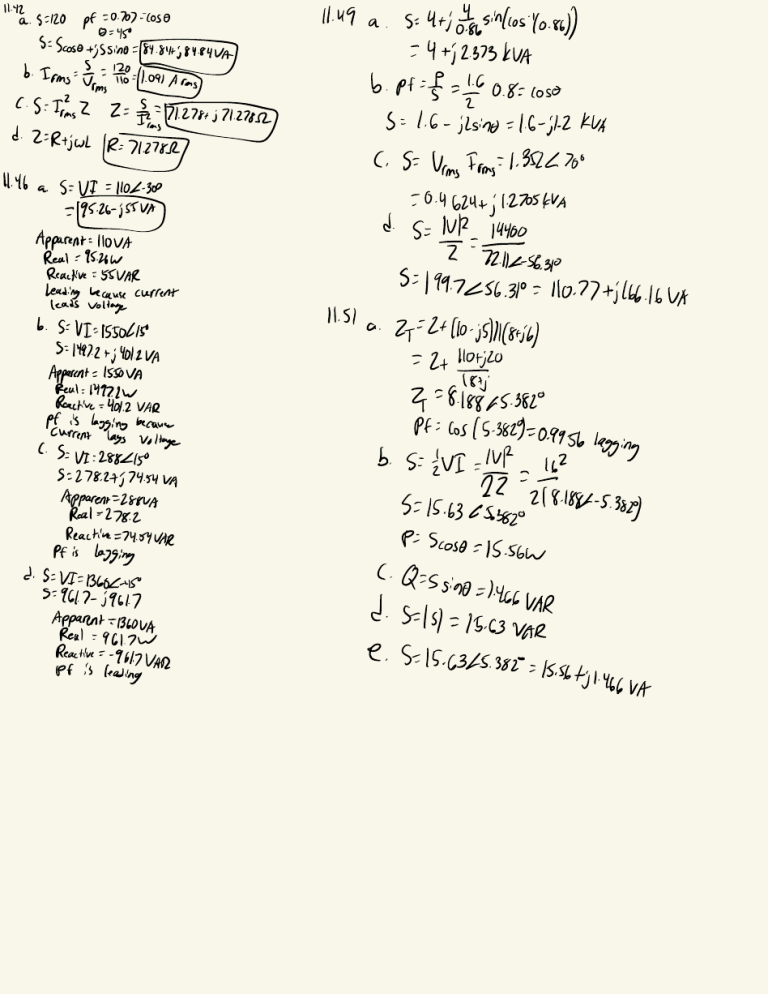 11.42
a. S=120 pf = 0.707 = cosθ
θ = 45°
S = Scosθ + jSsinθ = 84.84+j84.84VA
b. Irms = S/Vrms = 120/110 = 1.091 A rms
c. S = I²rms Z Z = S/I²rms = 71.278+j71.278Ω
d. Z = R+jωL R = 71.278Ω
11.46 a. S = VI = 110∠-30°
= 95.26-j55VA
Apparent = 110VA
Real = 95.26W
Reactive = 55VAR
leading because current
leads voltage
b. S = VI = 1550∠15°
S = 1497.2 + j401.2VA
Apparent = 1550VA
Real = 1497.2W
Reactive = 401.2 VAR
pf is lagging because
current lags voltage
c. S = VI = 288∠15°
S = 278.2+j74.54 VA
Apparent = 288VA
Real = 278.2
Reactive = 74.54VAR
Pf is lagging
d. S = VI = 1360∠-45°
S = 961.7-j961.7
Apparent = 1360VA
Real = 961.7W
Reactive = -961.7VAR
pf is leading
11.49 a. S = 4+j 4/0.86 sin(cos⁻¹(0.86))
= 4+j2.373 kVA
b. pf = P/S = 1.6/2 0.8 = cosθ
S = 1.6 - j2sinθ = 1.6-j1.2 kVA
c. S = Vrms Irms = 1.352∠70°
= 0.4624+j1.2705kVA
d. S = |V|²/Z = 14400/72.11∠-56.31°
S = 199.7∠56.31° = 110.77+j166.16 VA
11.51 a. ZT = 2+(10-j5)||(8+j6)
= 2+ 110+j20/18+j
ZT = 8.188∠5.382°
Pf = cos(5.382°) = 0.9956 lagging
b. S = ½VI = |V|²/2Z = 16²/2(8.188∠-5.382°)
S = 15.63∠5.382°
P = Scosθ = 15.56W
c. Q = Ssinθ = 1.466 VAR
d. S = |S| = 15.63 VAR
e. S = 15.63∠5.382° = 15.56+j1.466 VA